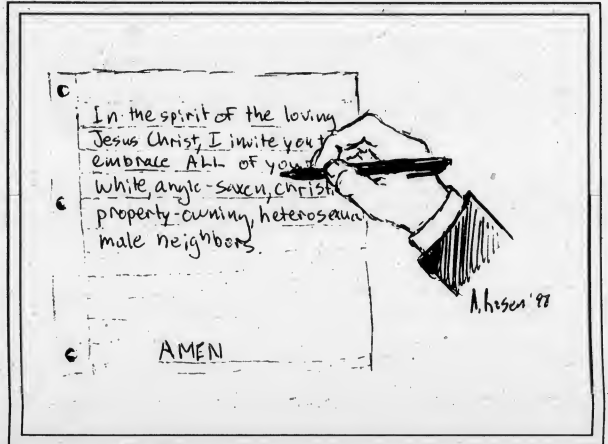 In the spirit of the loving
Jesus Christ, I invite you t
embrace ALL of you
white, anglo-saxon, christ
property-owning, heterosexua
male neighbors.
AMEN